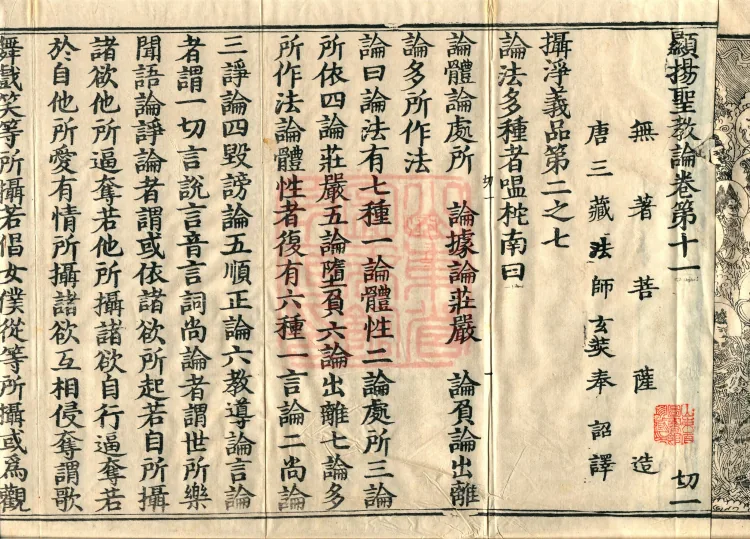 顯揚聖教論卷第十一 切一
無著菩薩造
唐三藏法師玄奘奉詔譯
攝淨義品第二之七
論法多種者嗢柁南曰
論體論處所 論據論莊嚴 論負論出離
論多所作法
論曰論法有七種一論體性二論處所三論
所依四論莊嚴五論墮負六論出離七論多
所作法論體性者復有六種一言論二尚論
三諍論四毀謗論五順正論六教導論言論
者謂一切言說言音言詞尚論者謂世所樂
聞語論諍論者謂或依諸欲所起若自所攝
諸欲他所逼奪若他所攝諸欲自行逼奪若
於自他所愛有情所攝諸欲互相侵奪謂歌
舞戲笑等所攝若倡女僕從等所攝或為觀
切一